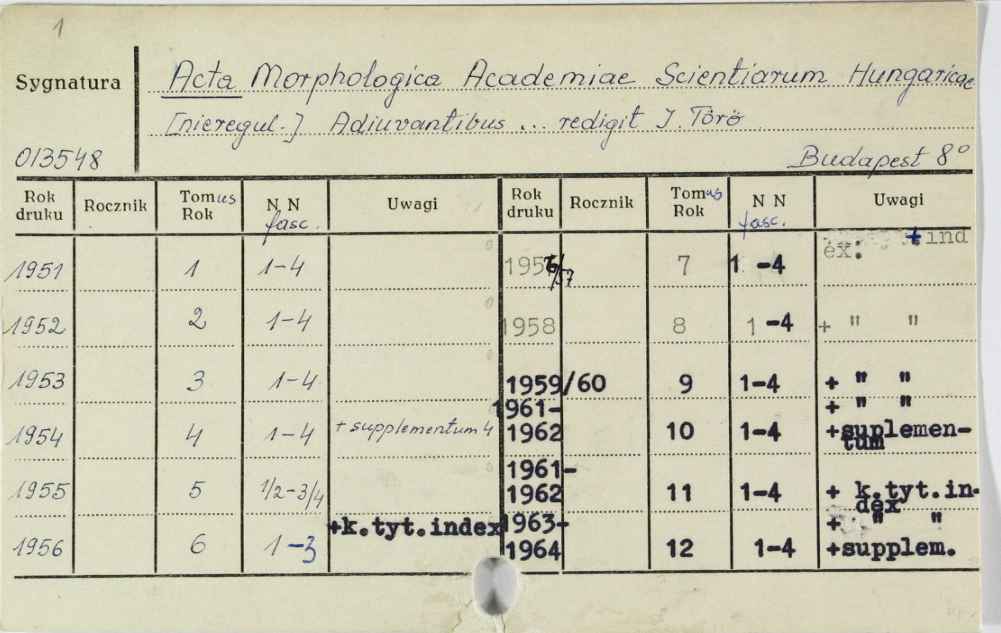 1
Sygnatura
Acta Morphologica Academiae Scientiarum Hungaricae
[nieregul.] Adiuvantibus ... redigit J. Törö
013548
Budapest 8°
Rok druku Rocznik Tomus Rok N N fasc. Uwagi Rok druku Rocznik Tomus Rok N N fasc. Uwagi
1951 1 1-4 /57 7 1-4 + index:
1952 2 1-4 1958 8 1-4 + " "
1953 3 1-4 1959/60 9 1-4 + " "
1954 4 1-4 + supplementum 4 1961-1962 10 1-4 + " " +suplemen-tum
1955 5 1/2-3/4 1961-1962 11 1-4 + k.tyt.in-dex
1956 6 1-3 +k.tyt.index 1963-1964 12 1-4 + " " +supplem.